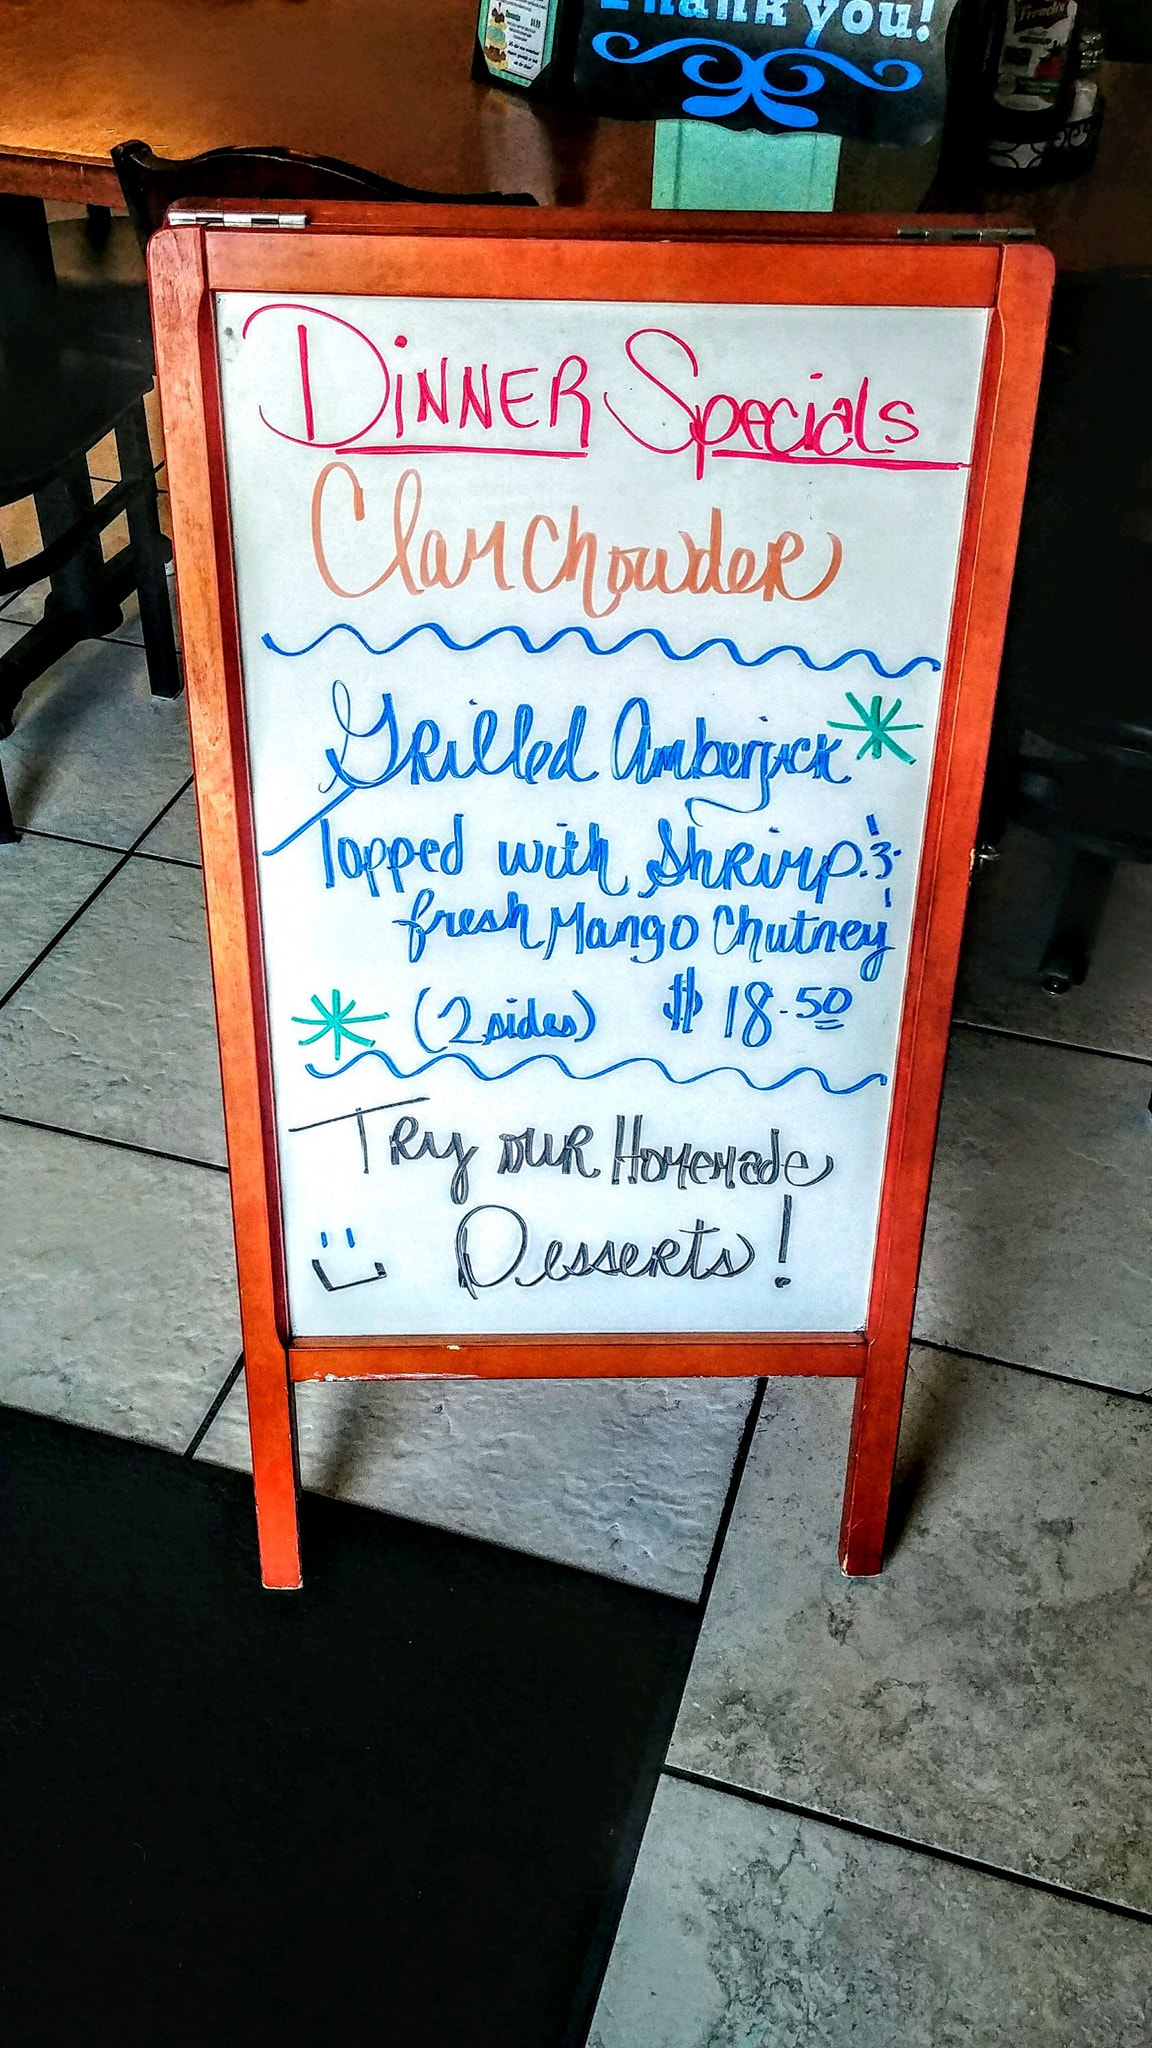 Thank you!
Dinner Specials
Clam Chowder
Grilled Amberjack
Topped with Shrimp &
fresh Mango Chutney
(2 sides) $18.50
Try our Homemade
Desserts!